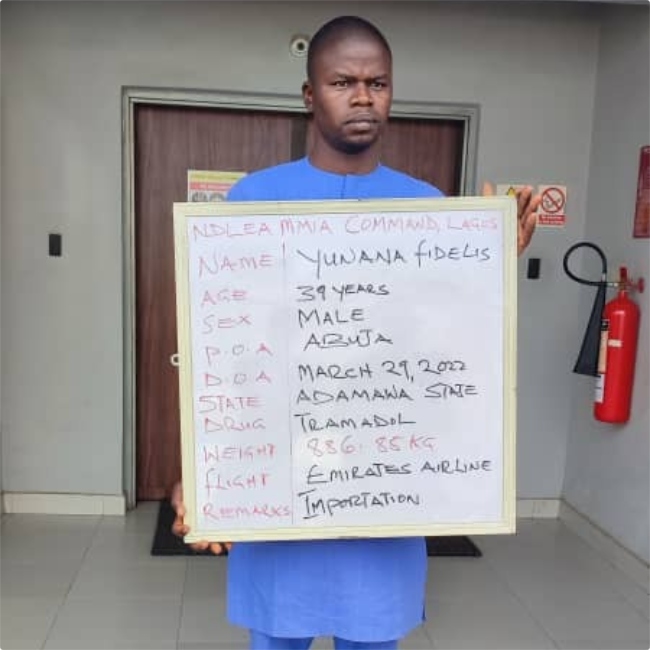 NDLEA MMIA COMMAND, LAGOS
NAME YUNANA FIDELIS
AGE 39 YEARS
SEX MALE
P.O.A ABUJA
D.O.A MARCH 29, 2022
STATE ADAMAWA STATE
DRUG TRAMADOL
WEIGHT 886.85KG
FLIGHT EMIRATES AIRLINE
REEMARKS IMPORTATION